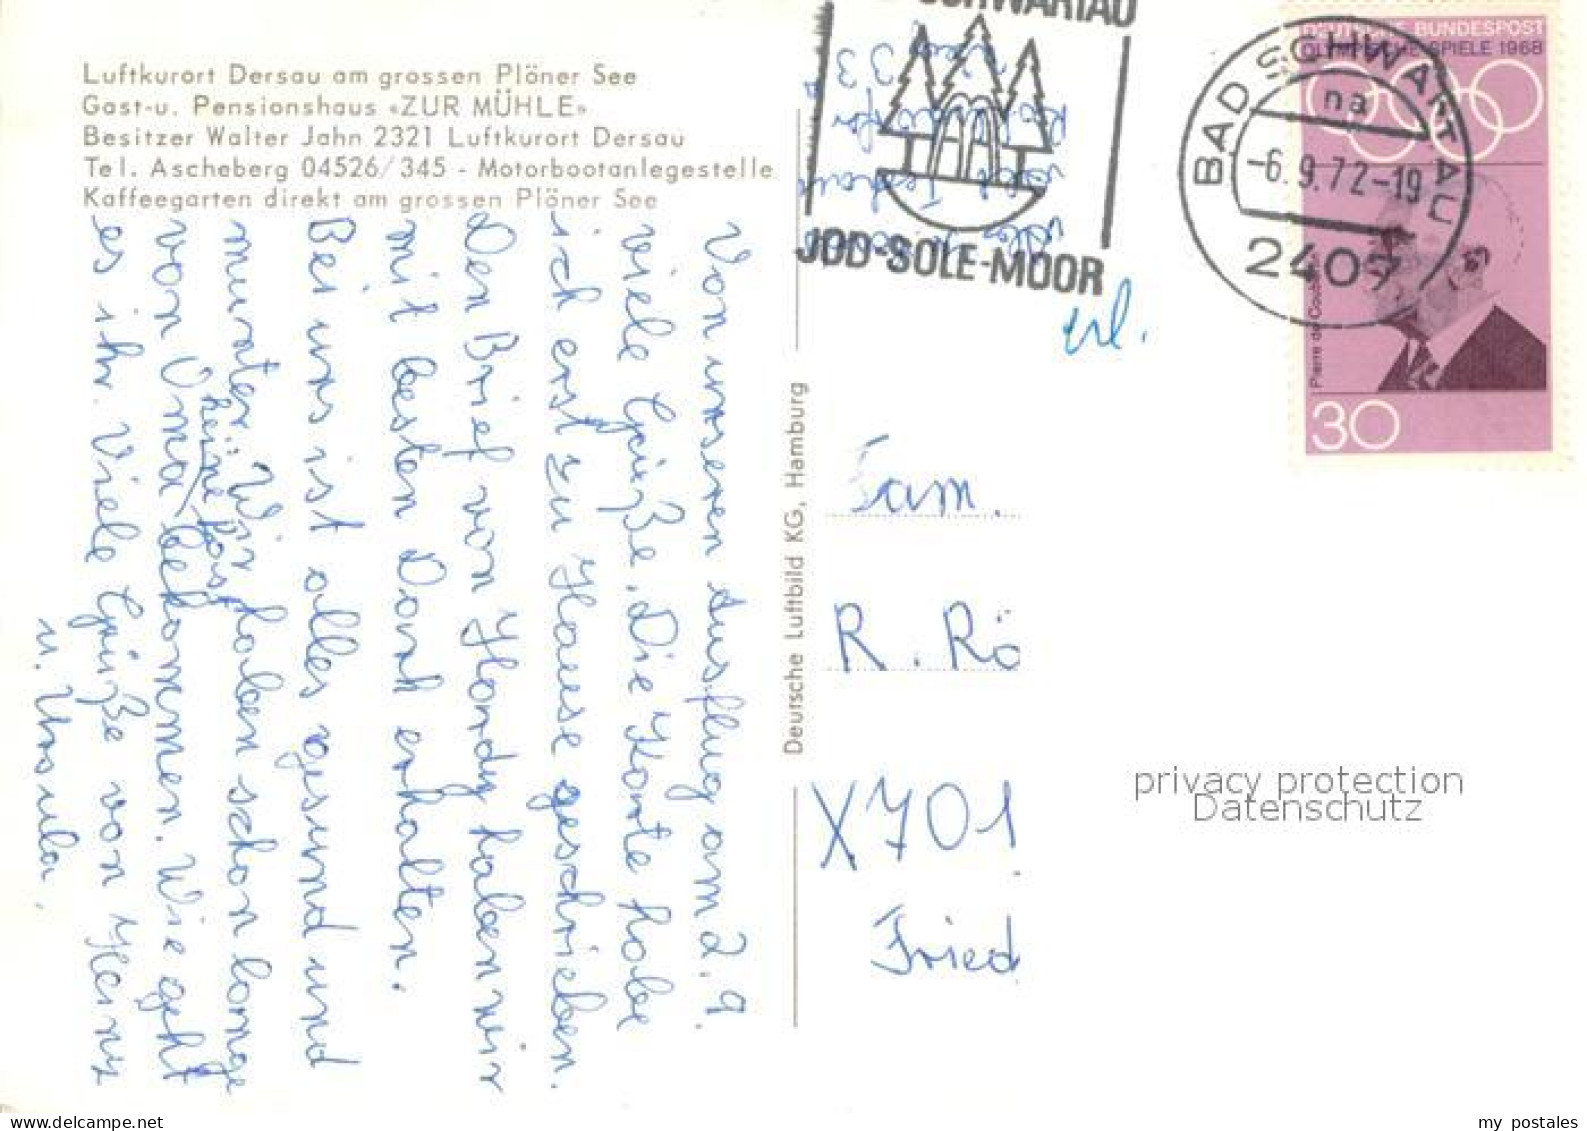 Luftkurort Dersau am grossen Plöner See
Gast-u. Pensionshaus «ZUR MÜHLE»
Besitzer Walter Jahn 2321 Luftkurort Dersau
Tel. Ascheberg 04526/345 - Motorbootanlegestelle
Kaffeegarten direkt am grossen Plöner See
Von unseren Ausflug am 2. 9.
viele Grüße. Die Karte habe
ich erst zu Hause geschrieben.
Den Brief von Hardy haben wir
mit besten Dank erhalten.
Bei uns ist alles gesund und
munter. Wir haben schon lange
keine Post
von Oma bekommen. Wie geht
es ihr. Viele Grüße von Heinz
u. Ursula.
Deutsche Luftbild KG, Hamburg
SCHWARTAU
JOD-SOLE-MOOR
BAD SCHWARTAU
na
-6.9.72-19
2407
DEUTSCHE BUNDESPOST
OLYMPISCHE SPIELE 1968
Pierre de Coubertin
30
erl.
Fam.
R. Rö
X701
Fried
privacy protection
Datenschutz
www.delcampe.net
my postales